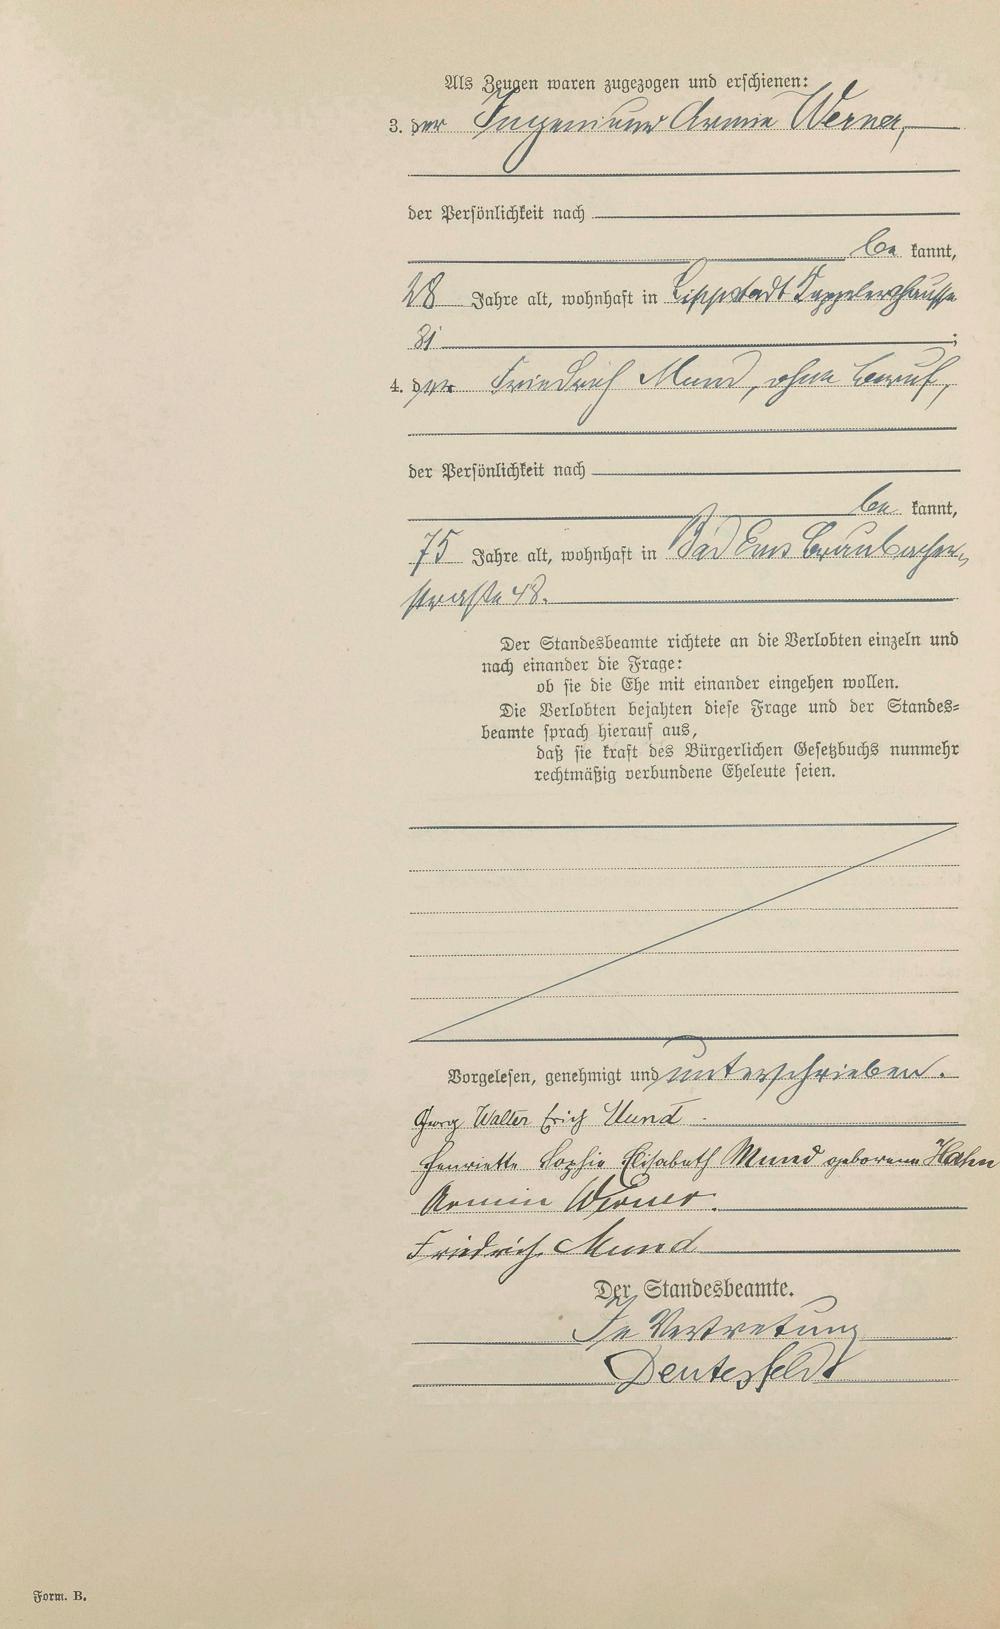 Als Zeugen waren zugezogen und erschienen:
3. der Ingenieur Armin Werner,
der Persönlichkeit nach
be kannt,
28 Jahre alt, wohnhaft in Lippstadt
31 ;
4. der Friedrich Mund, ohne Beruf,
der Persönlichkeit nach
be kannt,
75 Jahre alt, wohnhaft in Bad Ems Braubacher-
straße 48.
Der Standesbeamte richtete an die Verlobten einzeln und
nach einander die Frage:
ob sie die Ehe mit einander eingehen wollen.
Die Verlobten bejahten diese Frage und der Standes-
beamte sprach hierauf aus,
daß sie kraft des Bürgerlichen Gesetzbuchs nunmehr
rechtmäßig verbundene Eheleute seien.
Vorgelesen, genehmigt und unterschrieben.
Georg Walter Erich Mund
Henriette Sophie Elisabeth Mund geborene Hahn
Armin Werner.
Friedrich Mund
Der Standesbeamte.
In Vertretung
Deutesfeld
Form. B.